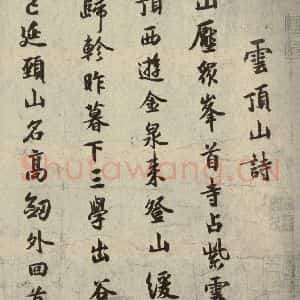 雲頂山詩
山壓眾峯首寺占紫雲
頂西遊金泉来登山緩
歸軫昨暮下三學出谷
延頸山名高劒外回首
Shufawang.CN